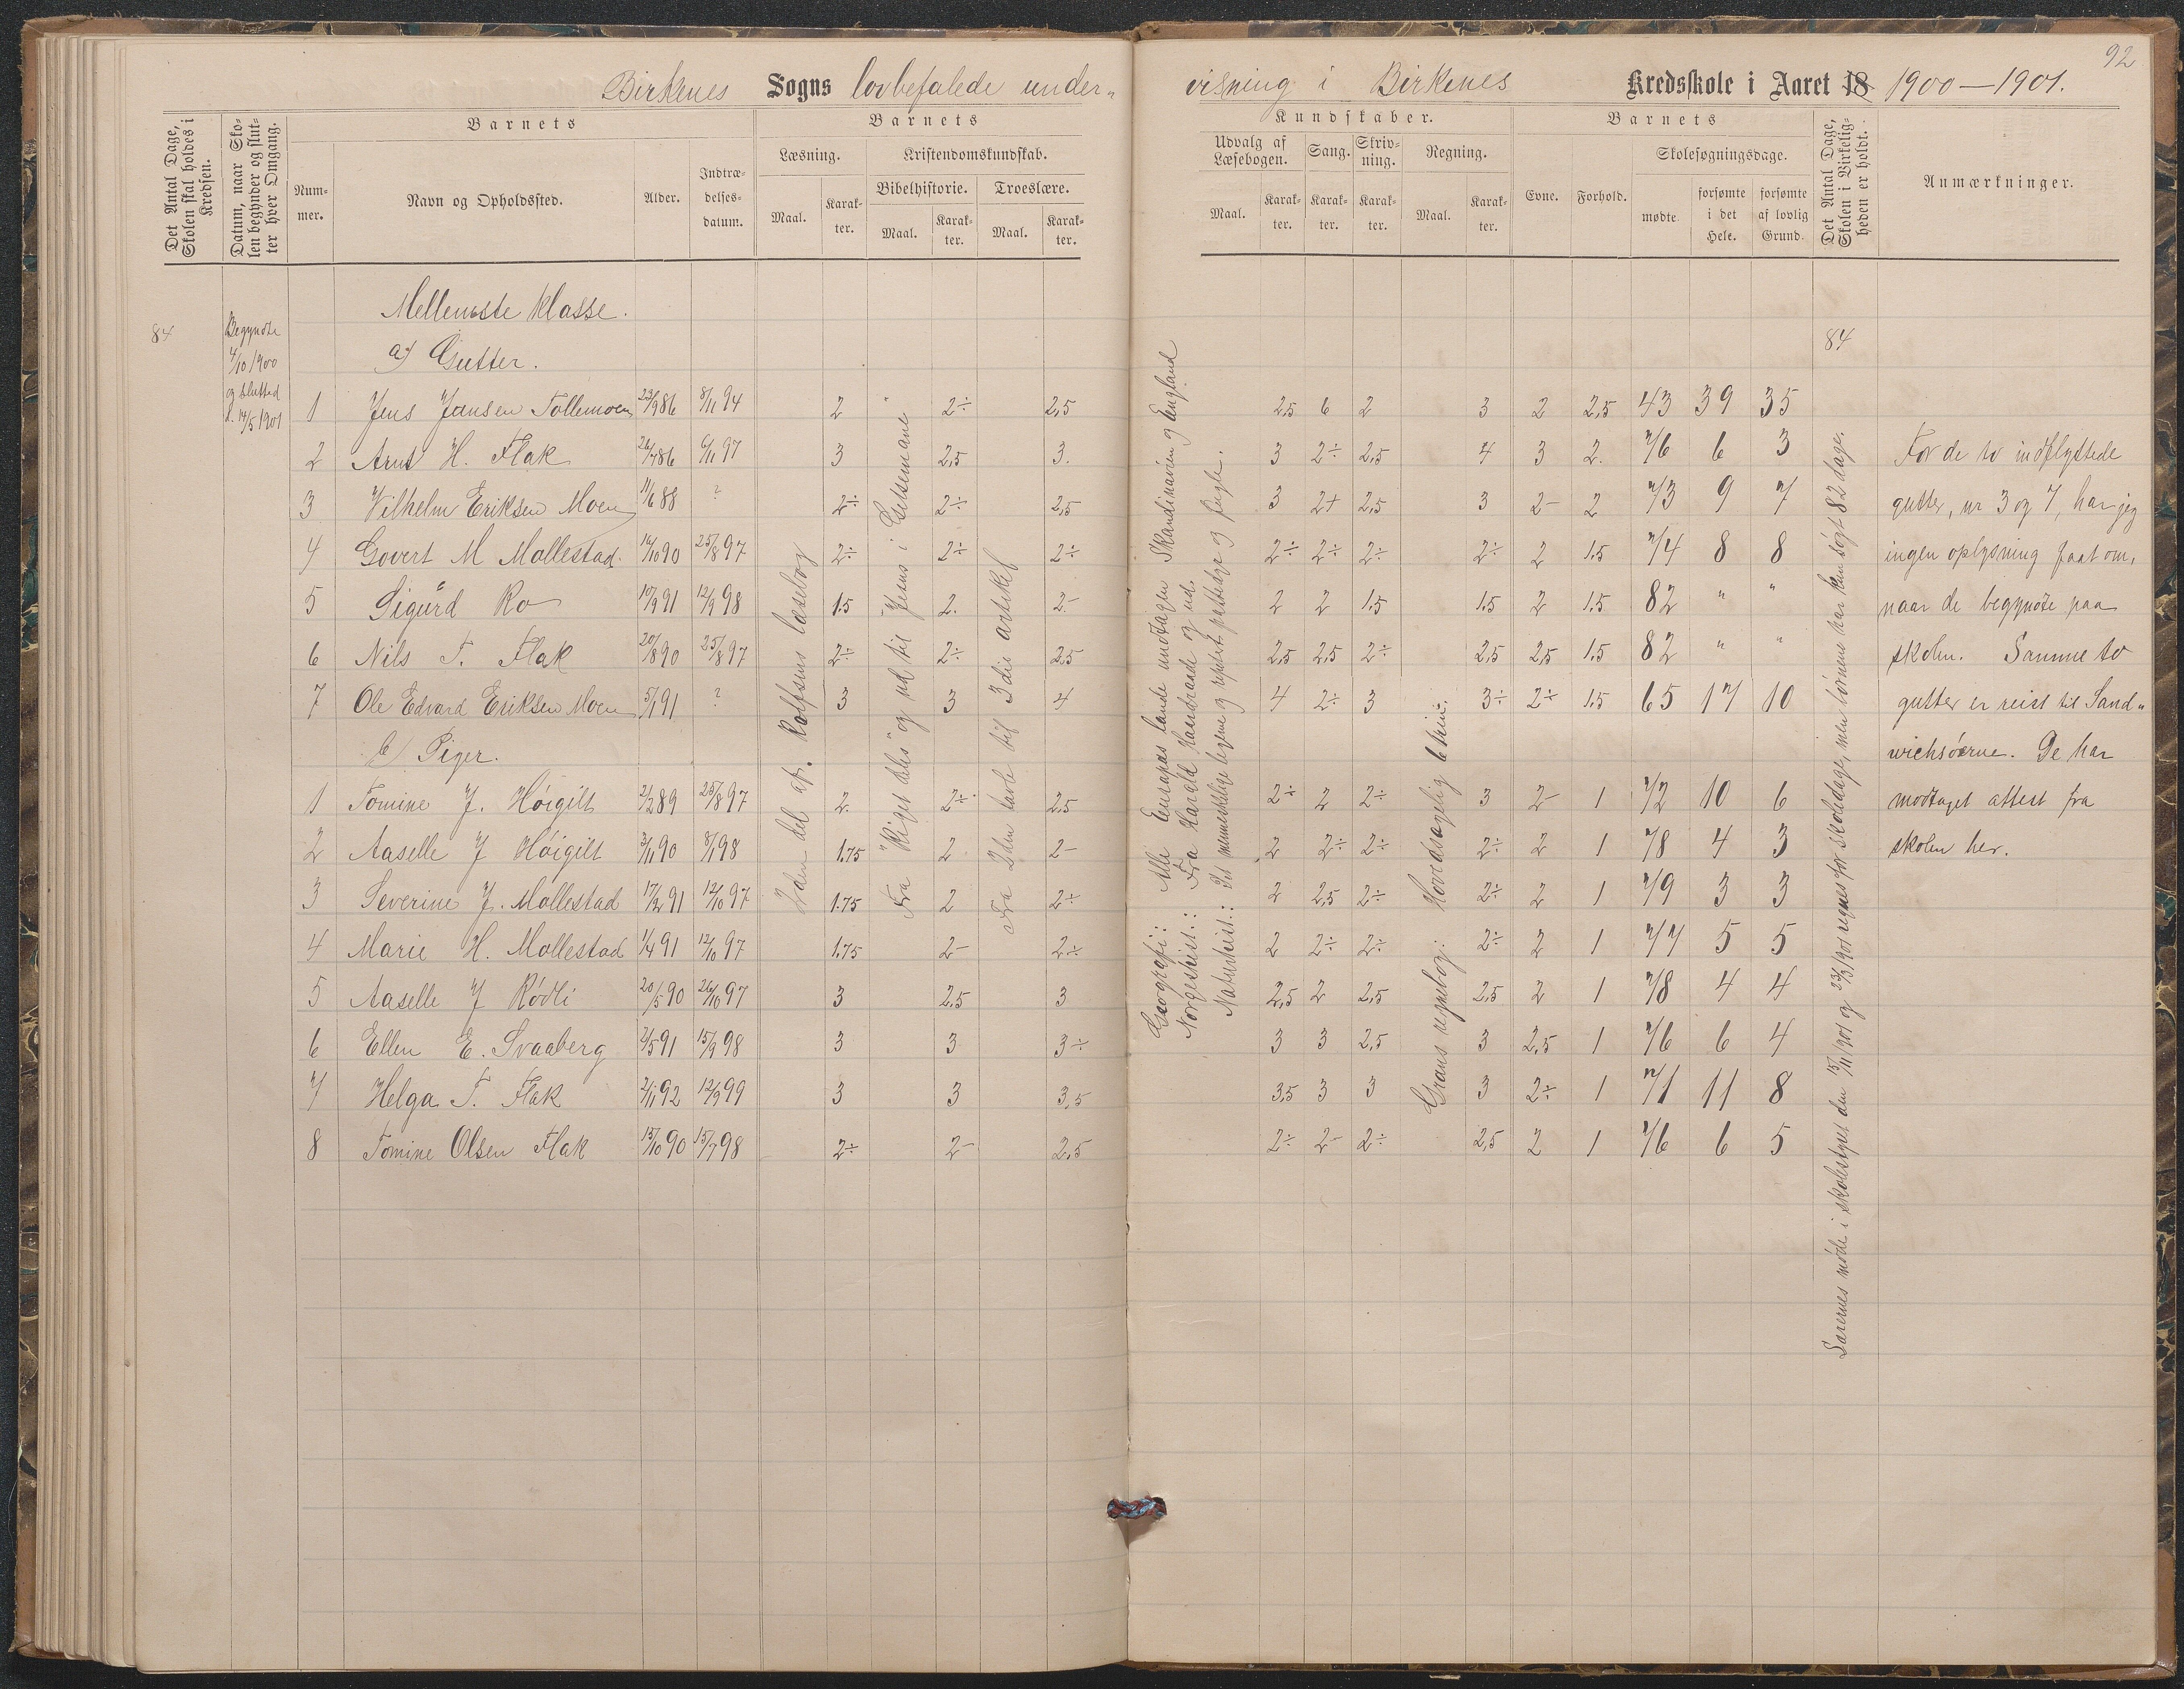 92
Birkenes Sogns lovbefalede under-
visning i Birkenes Kredsskole i Aaret 18 1900-1901.
Det Antal Dage, Skolen skal holdes i Kredsen.
Datum, naar Skolen begynder og slutter hver Omgang.
Barnets
Nummer.
Navn og Opholdssted.
Alder.
Indtrædelsesdatum.
Barnets
Læsning.
Maal.
Karakter.
Kristendomskundskab.
Bibelhistorie.
Maal.
Karakter.
Troeslære.
Maal.
Karakter.
Kundskaber.
Udvalg af Læsebogen.
Maal.
Karakter.
Sang.
Karakter.
Skrivning.
Karakter.
Regning.
Maal.
Karakter.
Barnets
Evne.
Forhold.
Skolesøgningsdage.
mødte.
forsømte i det Hele.
forsømte af lovlig Grund.
Det Antal Dage, Skolen i Virkeligheden er holdt.
Anmærkninger.
84
Begyndte
4/10 1900
og slutted
d. 14/5 1901
Mellemste klasse.
a) Gutter.
84
1 Jens Jansen Tollemoen 23/9 86 8/11 94 2 2÷ 2,5 2,5 6 2 3 2 2,5 43 39 35
2 Arnt H. Flak 26/7 86 6/11 97 3 2,5 3. 3 2÷ 2,5 4 3 2. 76 6 3
3 Vilhelm Eriksen Moen 11/6 88 ? 2÷ 2÷ 2,5 3 2+ 2,5 3 2- 2 73 9 7
4 Govert M Mollestad. 16/10 90 25/8 97 2÷ 2÷ 2÷ 2÷ 2÷ 2÷ 2÷ 2 1.5 74 8 8
5 Sigurd Ro 10/9 91 12/9 98 1.5 2. 2- 2 2 1.5 1.5 2 1.5 82 " "
6 Nils T. Flak 20/8 90 25/8 97 2÷ 2÷ 2,5 2,5 2,5 2÷ 2,5 2,5 1.5 82 " "
7 Ole Edvard Eriksen Moen 5/1 91 ? 3 3 4 4 2÷ 3 3÷ 2÷ 1.5 65 17 10
b) Piger.
1 Tomine J. Høigilt 2/2 89 25/8 97 2. 2÷ 2,5 2÷ 2 2÷ 3 2- 1 72 10 6
2 Aaselle J Høigilt 3/11 90 8/1 98 1.75 2 2- 2 2÷ 2÷ 2÷ 2 1 78 4 3
3 Severine J. Mollestad 17/2 91 12/10 97 1.75 2 2÷ 2 2,5 2÷ 2÷ 2 1 79 3 3
4 Marie H. Mollestad 1/4 91 12/10 97 1.75 2- 2÷ 2 2÷ 2÷ 2÷ 2 1 77 5 5
5 Aaselle J Rødli 20/5 90 26/10 97 3 2,5 3 2,5 2 2,5 2,5 2 1 78 4 4
6 Ellen E. Svaaberg 2/5 91 15/9 98 3 3 3÷ 3 3 2,5 3 2,5 1 76 6 4
7 Helga T. Flak 2/1 92 12/9 99 3 3 3,5 3,5 3 3 3 2÷ 1 71 11 8
8 Tomine Olsen Flak 15/10 90 15/7 98 2÷ 2- 2,5 2÷ 2- 2÷ 2,5 2 1 76 6 5
2den del af. Rolfsens læsebog
Fra "Riget deles" og ud til "Jesus i Getsemane"
Fra 2den tavle til 3die artikel
Geografi: Alle Europas lande undtagen Skandinavien og England
Norgeshist.: Fra Harald Haardraade og ud.
Naturhist.: Det menneskelige legeme og pattedyr og fugle.
Grans regnebog: Hovedsagelig 6 trin.
Lærernes møde i skolestyret den 15/11 1901 og 30/3 1901 regnes for skoledage, men børnene har kun søgt 82 dage.
For de to indflyttede
gutter, nr 3 og 7, har jeg
ingen oplysning faat om,
naar de begyndte paa
skolen. Samme to
gutter er reist til Sand-
wichsøerne. De har
modtaget attest fra
skolen her.